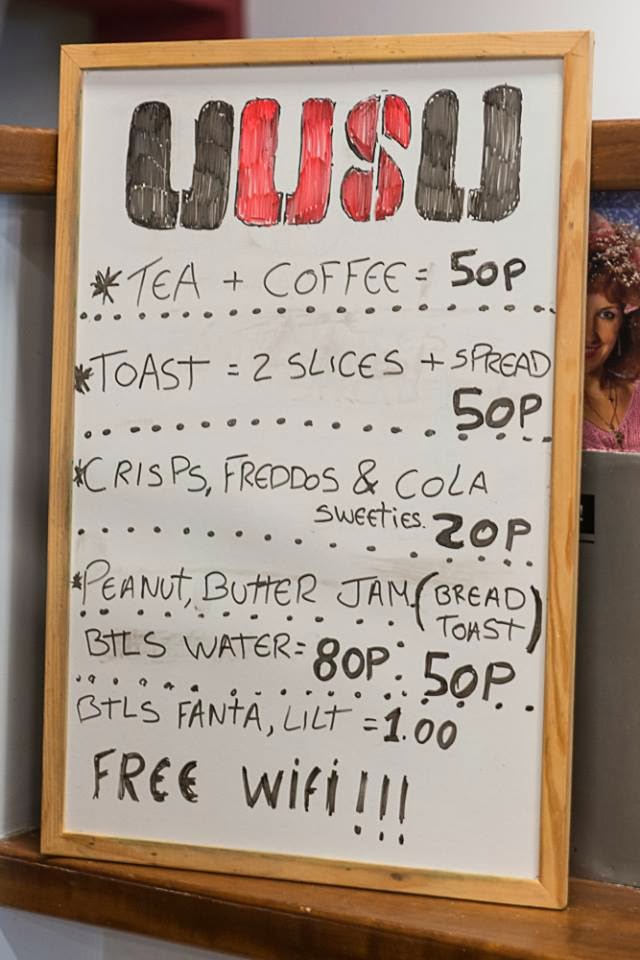 UUSU
* TEA + COFFEE = 50P
* TOAST = 2 SLICES + SPREAD
50P
* CRISPS, FREDDOS & COLA
SWEETIES. 20P
* PEANUT, BUTTER JAM (BREAD
TOAST)
BTLS WATER = 80P. 50P.
BTLS FANTA, LILT = 1.00
FREE WiFi!!!